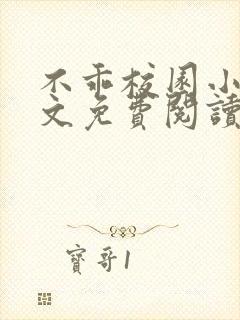 不乖校园小
文免費閱讀
寶哥1